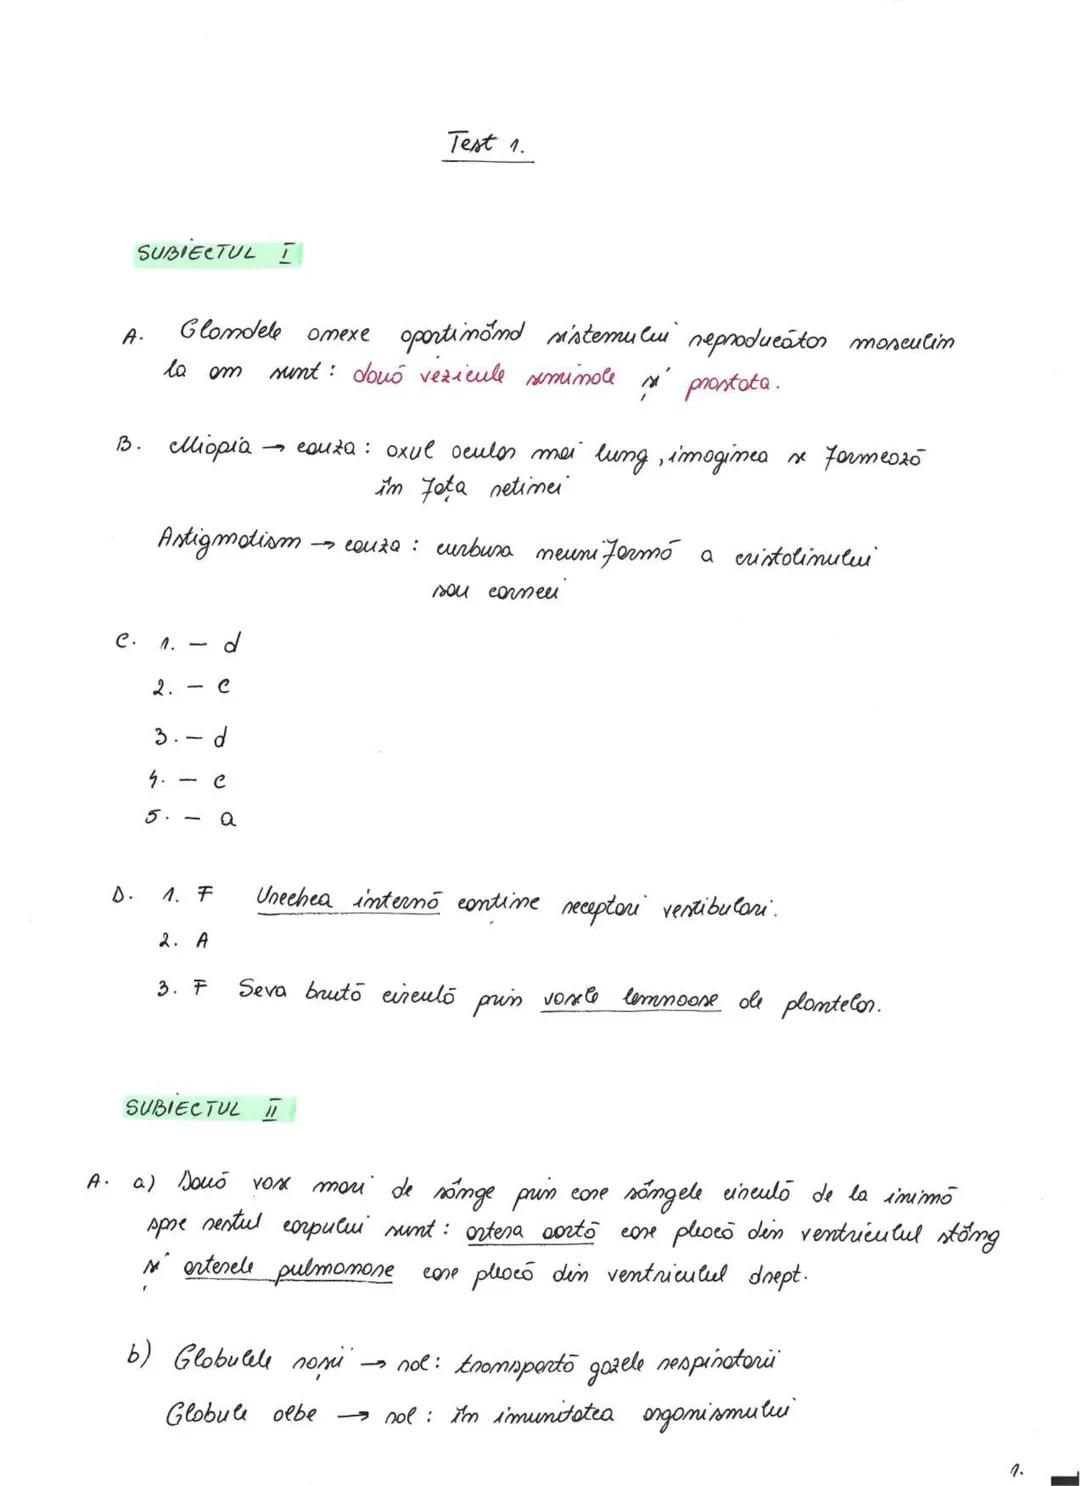 Test 1.
SUBIECTUL I
A. Glandele anexe aparținând sistemului reproducător masculin
la om sunt: două vezicule seminale și prostata.
B. Miopia → cauza: axul ocular mai lung, imaginea se formează
în fața retinei
Astigmatism → cauza: curbura neuniformă a cristalinului
sau corneei
C. 1. – d
2. – c
3. – d
4. – c
5. – a
D. 1. F Urechea internă conține receptori vestibulari.
2. A
3. F Seva brută circulă prin vasele lemnoase ale plantelor.
SUBIECTUL II
A. a) Două vase mari de sânge prin care sângele circulă de la inimă
spre restul corpului sunt: artera aortă care pleacă din ventriculul stâng
și arterele pulmonare care pleacă din ventriculul drept.
b) Globulele roșii → rol: transportă gazele respiratorii
Globule albe → rol: în imunitatea organismului
1.